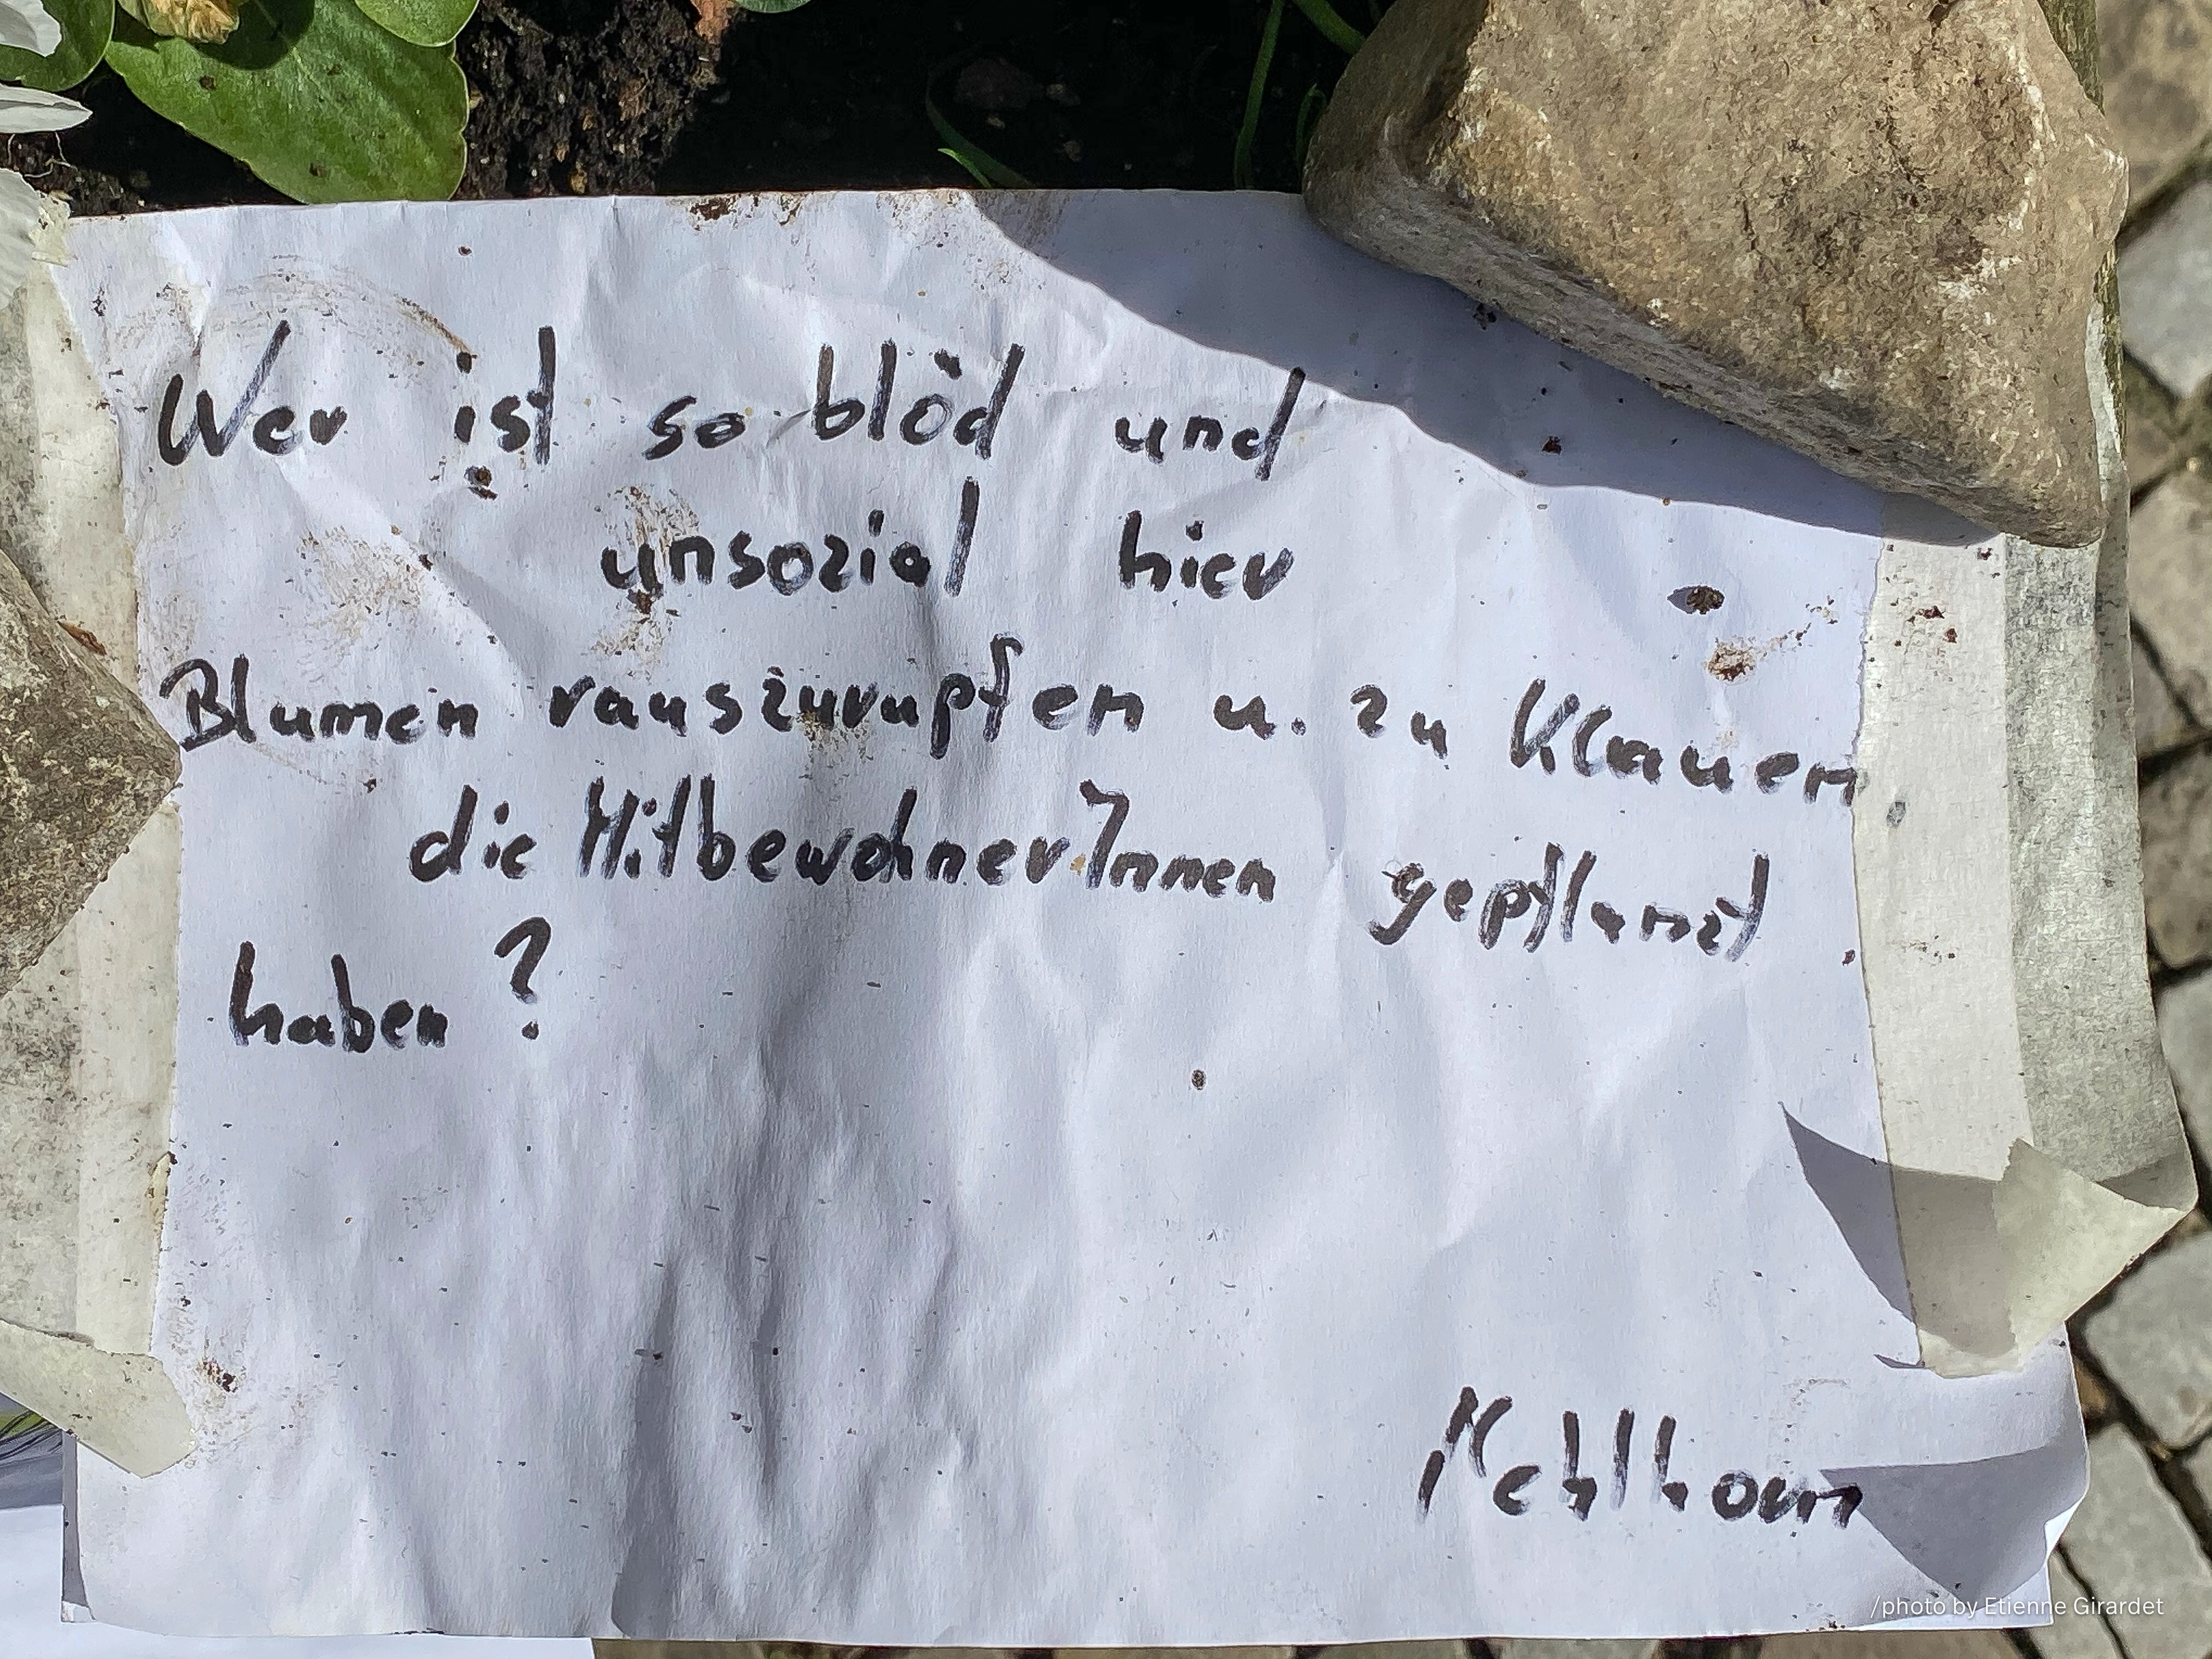 Wer ist so blöd und
unsozial hier
Blumen rauszurupfen u. zu Klauen,
die MitbewohnerInnen gepflanzt
haben ?
Mehlhorn
/photo by Etienne Girardet